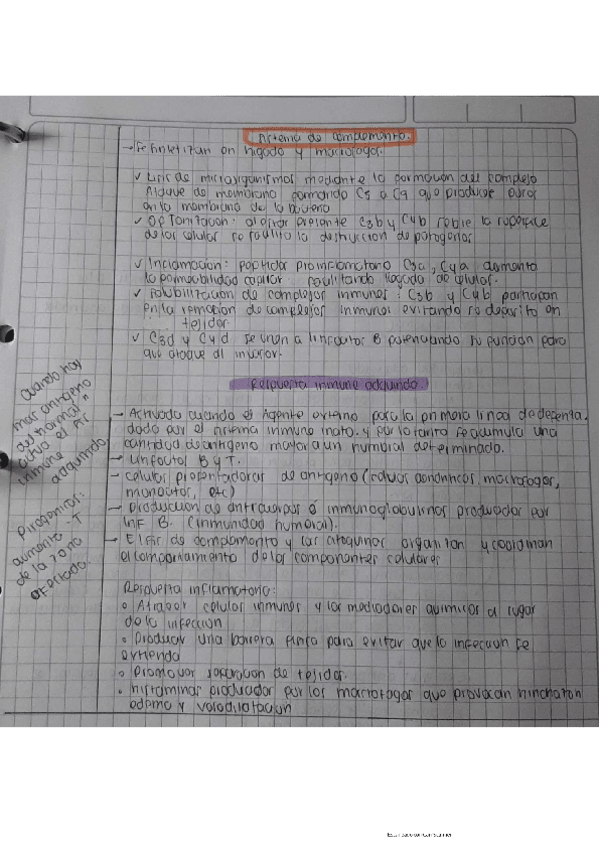 Sistema de complemento.
→ Se sintetizan en hígado y macrofago.
✓ Lisis de microorganismos mediante la formación del complejo
Ataque de membrana formando C5 a C9 que producen
en la membrana de la bacteria
✓ Opsonización: al estar presente C3b y C4b sobre la superficie
de las celulas se facilita la destruccion de patogenos
✓ Inflamación: peptidos proinflamatorio C3a, C4a aumenta
la permeabilidad capilar facilitando llegada de celulas.
✓ Solubilización de complejos inmunes: C3b y C4b participan
en la remoción de complejos inmunes evitando su deposito en
tejidos.
✓ C3d y C4d se unen a linfocitos B potenciando su función para
que ataque al invasor.
Respuesta inmune adquirida
cuando hay
mas antigeno
del normal
activa el sis
inmune
adquirido
→ Activado cuando el Agente externo pasa la primera linea de defensa.
dado por el sistema inmune inato. y por lo tanto se acumula una
cantidad de antigeno mayor a un humbral determinado.
→ Linfocitos B y T.
→ celulas presentadoras de antigeno (celulas dendriticas, macrofagos,
monocitos, etc)
→ Produccion de anticuerpos ó inmunoglobulinas producidos por
linf B. (inmunidad humoral).
→ El sis de complemento y las citoquinas organizan y coordinan
el comportamiento de los componentes celulares
Pirogenios:
aumento T
de la zona
afectada.
Respuesta inflamatoria:
• Atraer celulas inmunes y los mediadores quimicos al lugar
de la infección
• Producir una barrera fisica para evitar que la infección se
extienda
• Promover reparación de tejidos.
• histaminas producidas por los macrofagos que provocan hinchazon
edema y vasodilatación